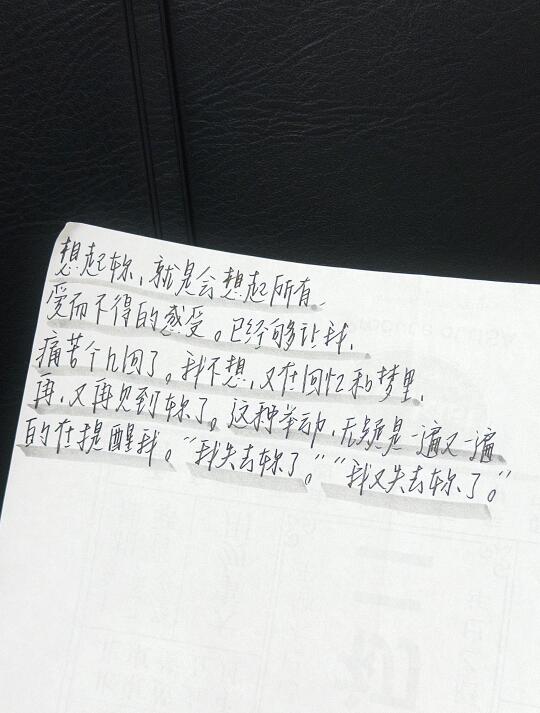 想起你、就是会想起所有、
爱而不得的感受。已经够让我、
痛苦个几回了。我不想、又在回忆和梦里、
再、又再见到你了。这种举动、无疑是一遍又一遍
的在提醒我。“我失去你了。”“我又失去你了。”